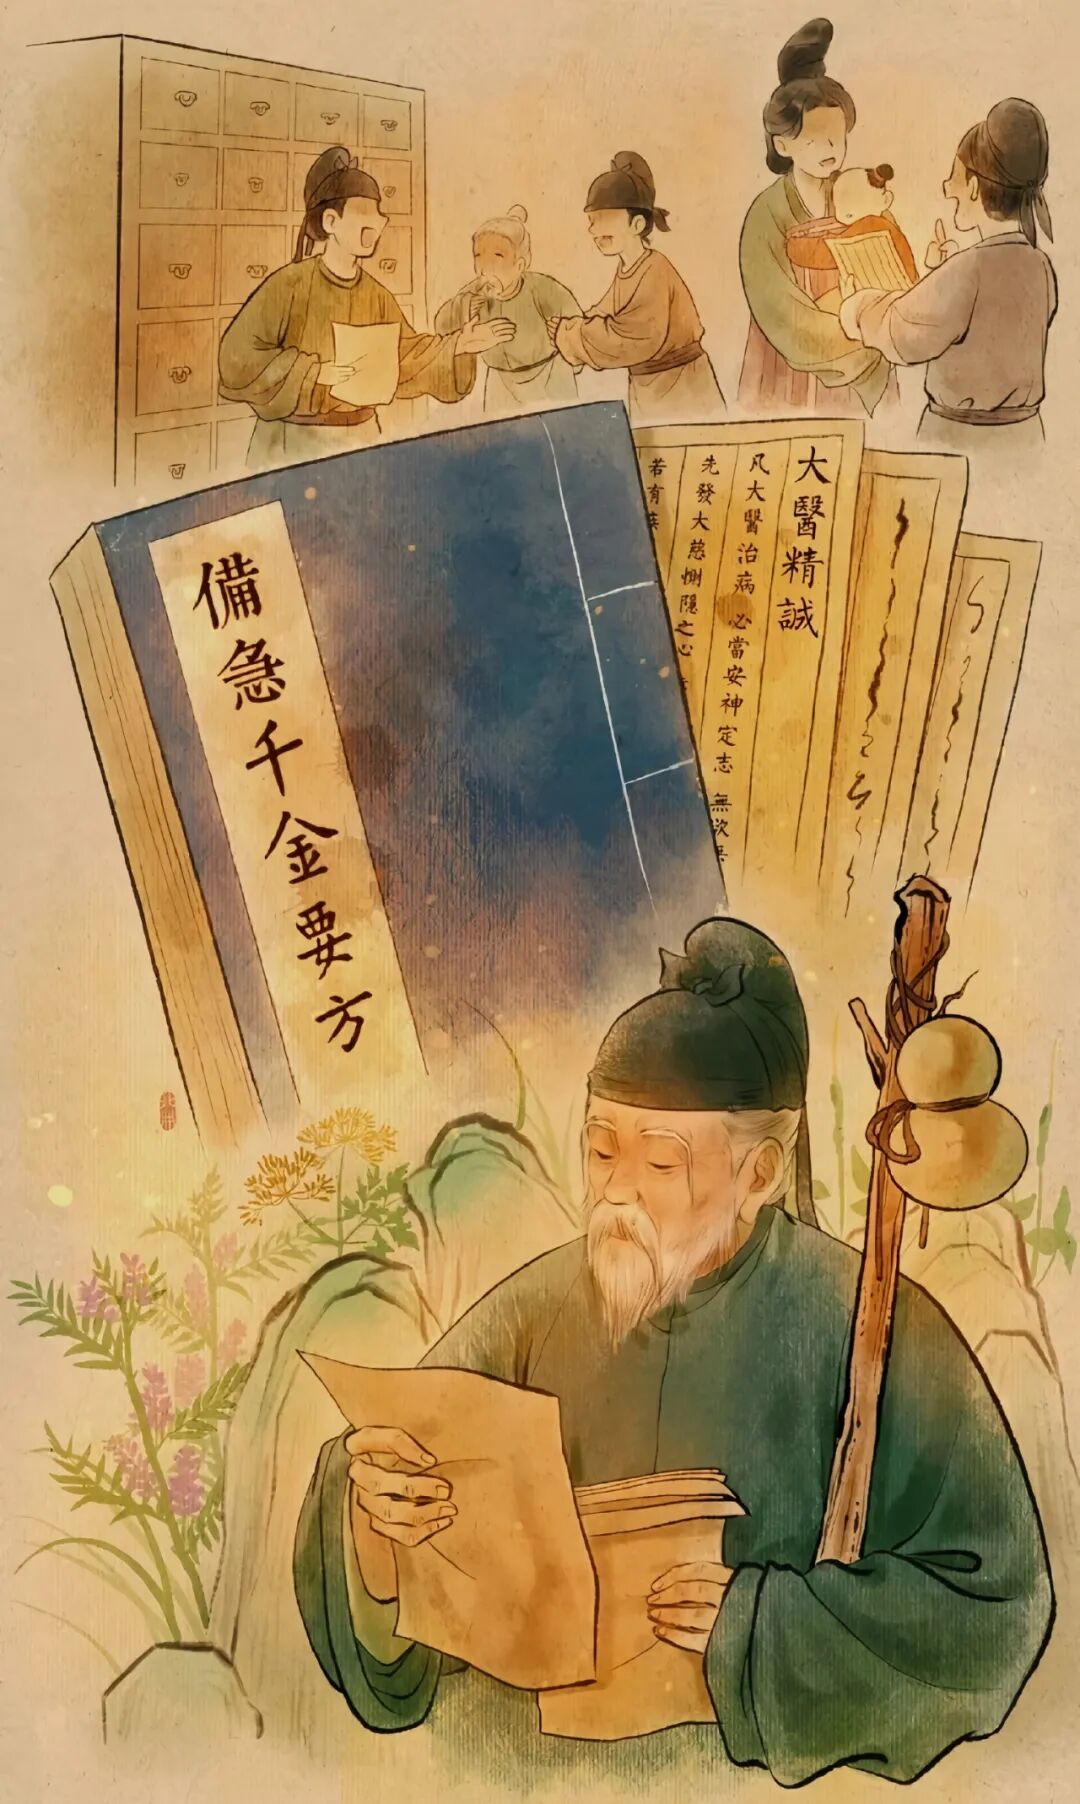 備急千金要方
大醫精誠
凡大醫治病 必當安神定志 無欲
先發大慈惻隱之心
若有疾